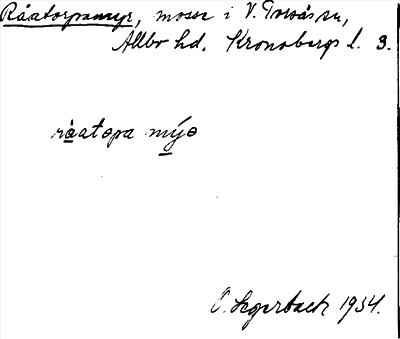 Råatorpamyr, mosse i V. Torsås sn,
Allbo hd. Kronobergs l. 3.
råatopa mýo
O. Segerback 1934.